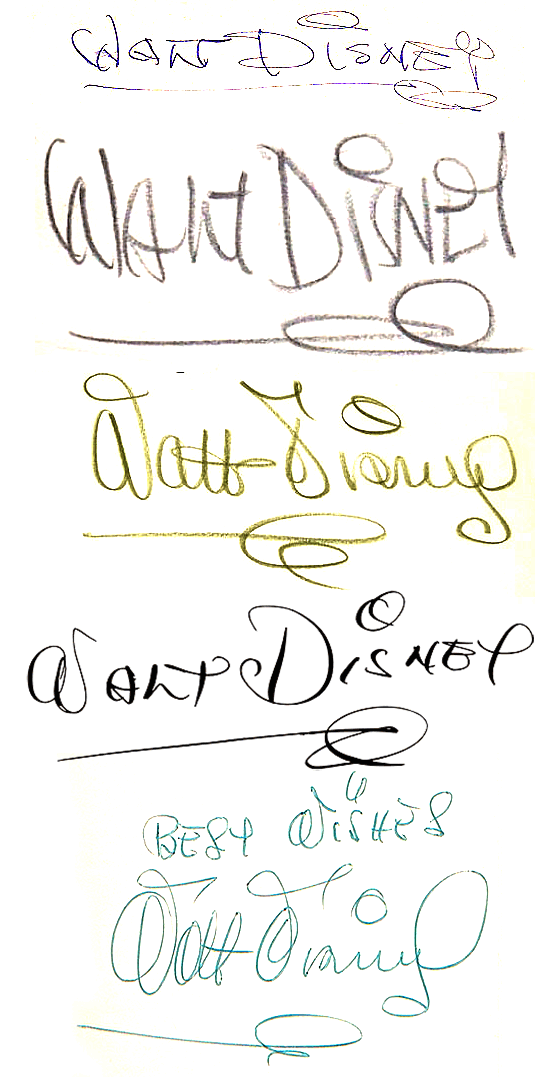 WALT DISNEY
WALT DISNEY
Walt Disney
WALT DISNEY
BEST WISHES
Walt Disney